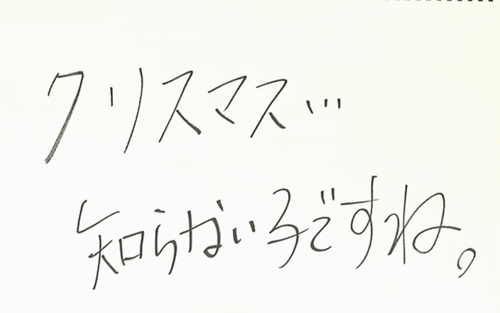 クリスマス…
知らない子ですね。